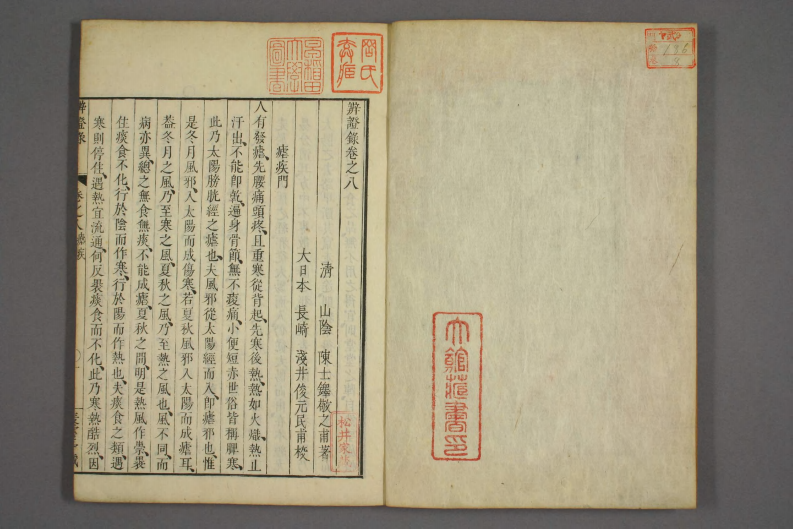 辨證錄卷之八
清 山陰 陳士鐸敬之甫著
大日本 長崎 淺井俊元民甫校
瘧疾門
人有發瘧先腰痛頭疼且重寒從背起先寒後熱熱如火熾熱止
汗出不能卽乾遍身骨節無不痠痛小便短赤世俗皆稱脾寒
此乃太陽膀胱經之瘧也夫風邪從太陽經而入卽瘧邪也惟
是冬月風邪入太陽而成傷寒若夏秋風邪入太陽而成瘧耳
蓋冬月之風乃至寒之風夏秋之風乃至熱之風也風不同而
病亦異總之無食無痰不能成瘧夏秋之間明是熱風作祟裹
住痰食不化行於陰而作寒行於陽而作熱也夫痰食之類遇
寒則停住遇熱宜流通何反裹痰食而不化此乃寒熱酷烈因
辨證錄 卷之八 瘧疾
松井家
大館藏書印